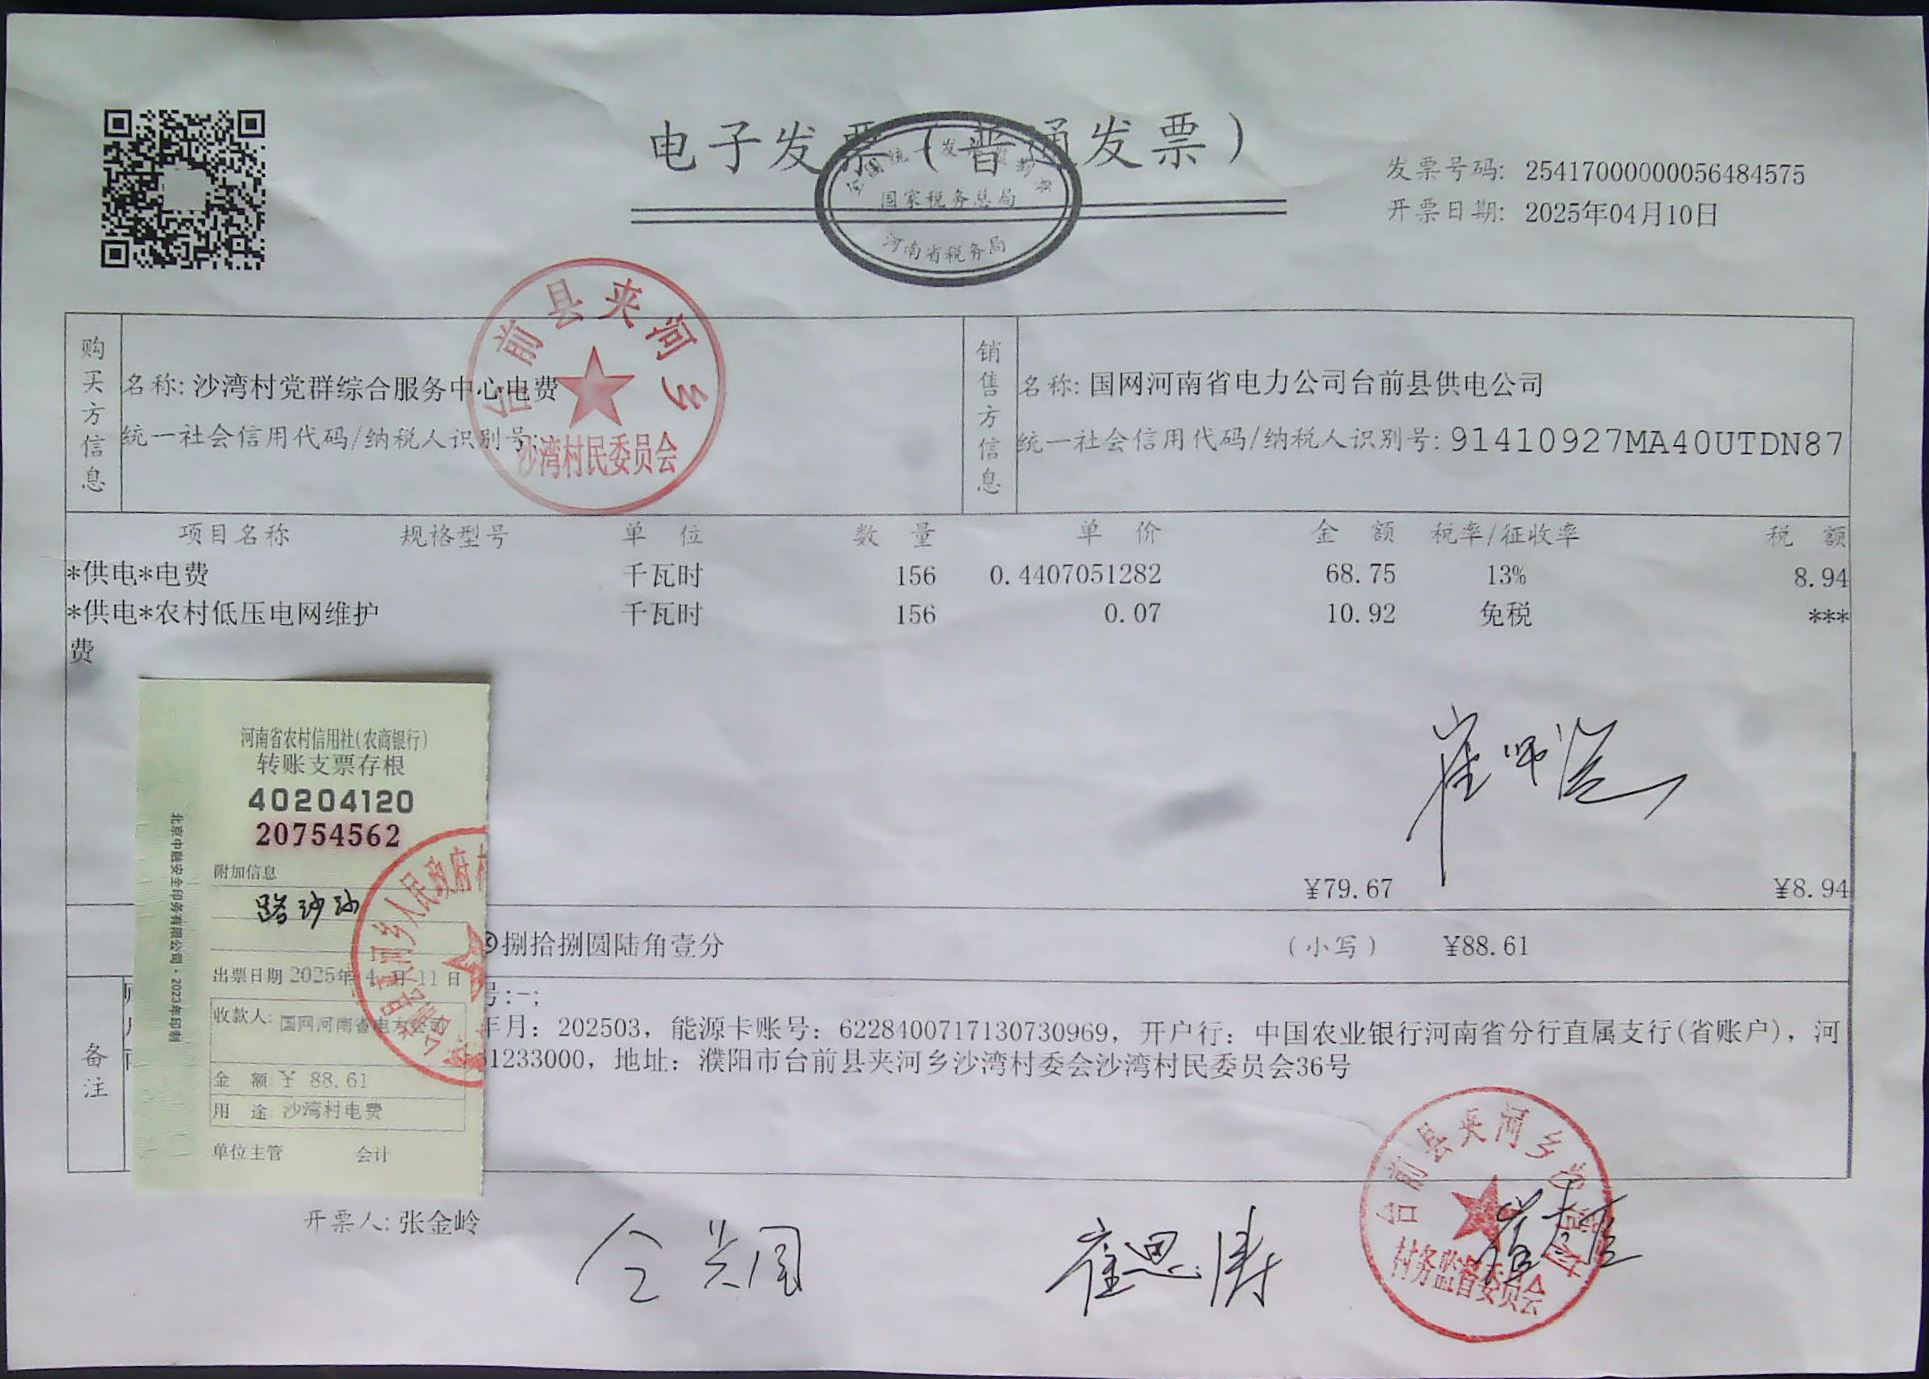 电子发票（普通发票）
全国统一发票监制章
国家税务总局
河南省税务局
发票号码: 25417000000056484575
开票日期: 2025年04月10日
购买方信息
名称: 沙湾村党群综合服务中心电费
统一社会信用代码/纳税人识别号:
台前县夹河乡
沙湾村民委员会
销售方信息
名称: 国网河南省电力公司台前县供电公司
统一社会信用代码/纳税人识别号: 91410927MA40UTDN87
项目名称 规格型号 单位 数量 单价 金额 税率/征收率 税额
*供电*电费 千瓦时 156 0.4407051282 68.75 13% 8.94
*供电*农村低压电网维护 千瓦时 156 0.07 10.92 免税 ***
费
¥79.67 ¥8.94
捌拾捌圆陆角壹分 (小写) ¥88.61
备注
号:-;
年月: 202503, 能源卡账号: 6228400717130730969, 开户行: 中国农业银行河南省分行直属支行(省账户), 河
1233000, 地址: 濮阳市台前县夹河乡沙湾村委会沙湾村民委员会36号
河南省农村信用社(农商银行)
转账支票存根
40204120
20754562
附加信息
路沙沙
出票日期 2025年 4 月 11 日
收款人: 国网河南省电力公司
金 额 ¥ 88.61
用 途 沙湾村电费
单位主管 会计
北京中融安全印务有限公司·2023年印制
乡人民政府
开票人: 张金岭
仝兴国
崔思涛
台前县夹河乡沙湾村
村务监督委员会